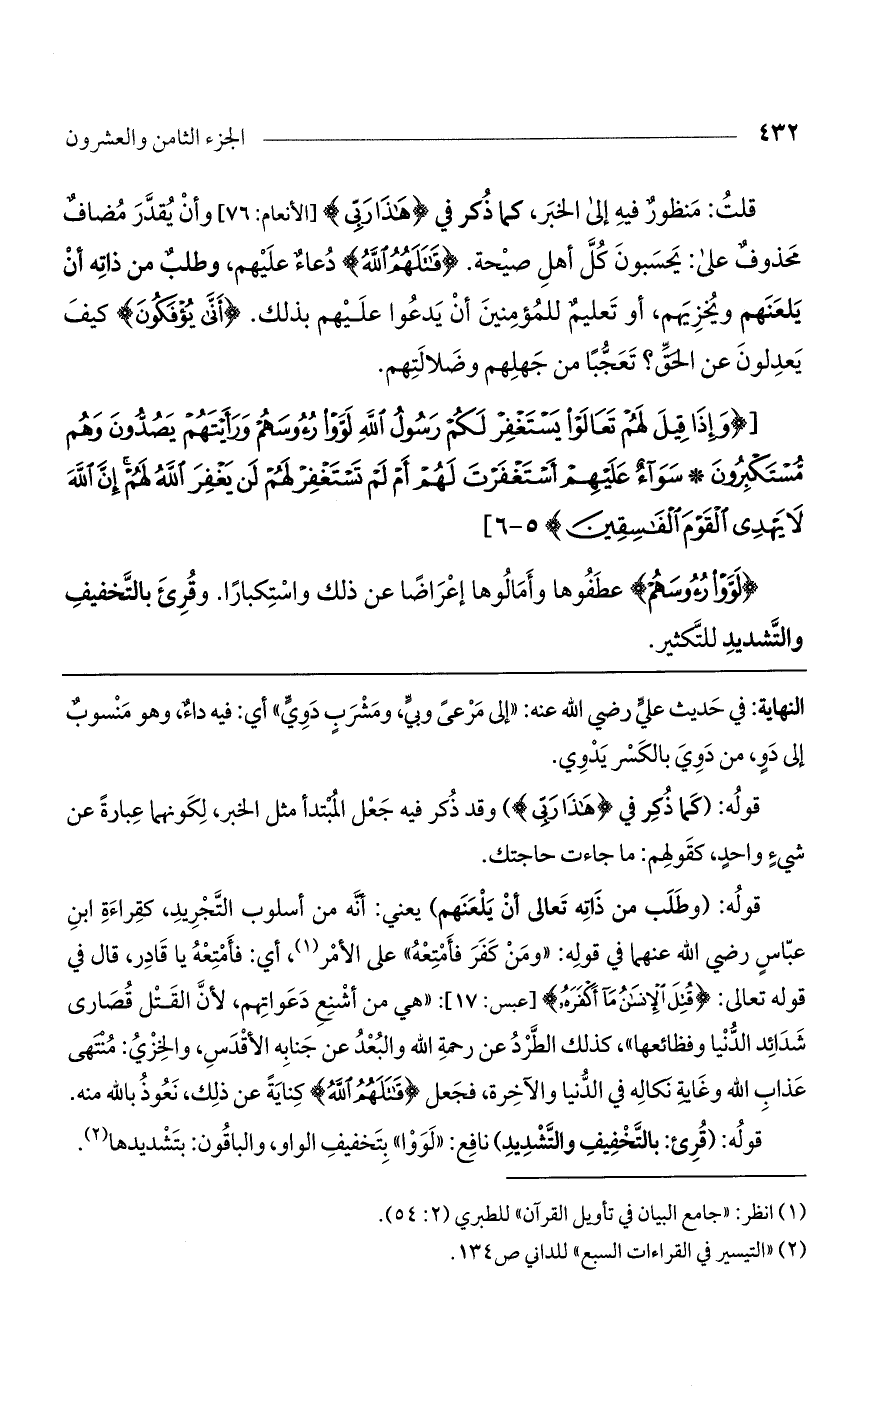 ٤٣٢ الجزء الثامن والعشرون
قلتُ: مَنظورٌ فيهِ إلىٰ الخبَر، كما ذُكر في ﴿هَٰذَا رَبِّى﴾ [الأنعام: ٧٦] وأنْ يُقدَّرَ مُضافٌ
محَذوفٌ علىٰ: يَحسَبونَ كُلَّ أهلِ صيْحة. ﴿قَٰتَلَهُمُ ٱللَّهُ﴾ دُعاءٌ علَيْهم، وطلبٌ من ذاتِه أنْ
يَلعَنَهم ويُخزِيَهم، أو تَعليمٌ للمُؤمِنينَ أنْ يَدعُوا علَـيْهم بذلك. ﴿أَنَّىٰ يُؤْفَكُونَ﴾ كيفَ
يَعدِلونَ عن الحَقِّ؟ تَعَجُّبًا من جَهلِهم وضَلالَتِهم.
[﴿وَإِذَا قِيلَ لَهُمْ تَعَالَوْا۟ يَسْتَغْفِرْ لَكُمْ رَسُولُ ٱللَّهِ لَوَّوْا۟ رُءُوسَهُمْ وَرَأَيْتَهُمْ يَصُدُّونَ وَهُم
مُّسْتَكْبِرُونَ * سَوَآءٌ عَلَيْهِمْ أَسْتَغْفَرْتَ لَهُمْ أَمْ لَمْ تَسْتَغْفِرْ لَهُمْ لَن يَغْفِرَ ٱللَّهُ لَهُمْ ۚ إِنَّ ٱللَّهَ
لَا يَهْدِى ٱلْقَوْمَ ٱلْفَٰسِقِينَ﴾ ٥-٦]
﴿لَوَّوْا۟ رُءُوسَهُمْ﴾ عطَفُوها وأَمَالُوها إعْرَاضًا عن ذلك واسْتِكبارًا. وقُرِئَ بالتَّخفيفِ
والتَّشديدِ للتَّكثير.
النهاية: في حَديث عليٍّ رضي الله عنه: «إلى مَرْعىً وبيٍّ، ومَشْرَبٍ دَوِيٍّ» أي: فيه داءٌ، وهو مَنْسوبٌ
إلى دَوٍ، من دَوِيَ بالكَسْر يَدْوِي.
قولُه: (كَما ذُكِر في ﴿هَٰذَا رَبِّى﴾) وقد ذُكر فيه جَعْل المُبْتدأ مثل الخبر، لِكَونهما عِبارةً عن
شيءٍ واحدٍ، كقَولهِم: ما جاءت حاجتك.
قولُه: (وطَلَب من ذَاتِه تَعالى أنْ يَلْعَنَهم) يعني: أنَّه من أسلوب التَّجْرِيدِ، كقِراءَةِ ابنِ
عبّاسٍ رضي الله عنهما في قولِه: «ومَنْ كَفَرَ فأَمْتِعْهُ» على الأمْر(١)، أي: فأَمْتِعْهُ يا قَادِر، قال في
قوله تعالى: ﴿قُتِلَ ٱلْإِنسَٰنُ مَآ أَكْفَرَهُۥ﴾ [عبس: ١٧]: «هي من أشْنعِ دَعَواتهِم، لأنَّ القَتْل قُصَارى
شَدَائِد الدُّنْيا وفظائعها»، كذلك الطَّرْدُ عن رحمةِ الله والبُعْدُ عن جَنابِه الأقْدَسِ، والخِزْيُ: مُنْتَهى
عَذابِ الله وغَايةِ نَكالِه في الدُّنيا والآخِرة، فجَعل ﴿قَٰتَلَهُمُ ٱللَّهُ﴾ كِنايَةً عن ذلِك، نَعُوذُ بالله منه.
قولُه: (قُرِئ: بالتَّخْفِيفِ والتَّشْدِيدِ) نافِع: «لَوَوْا» بِتَخفيفِ الواو، والباقُون: بتَشْديدها(٢).
(١) انظر: «جامع البيان في تأويل القرآن» للطبري (٢: ٥٤).
(٢) «التيسير في القراءات السبع» للداني ص١٣٤.